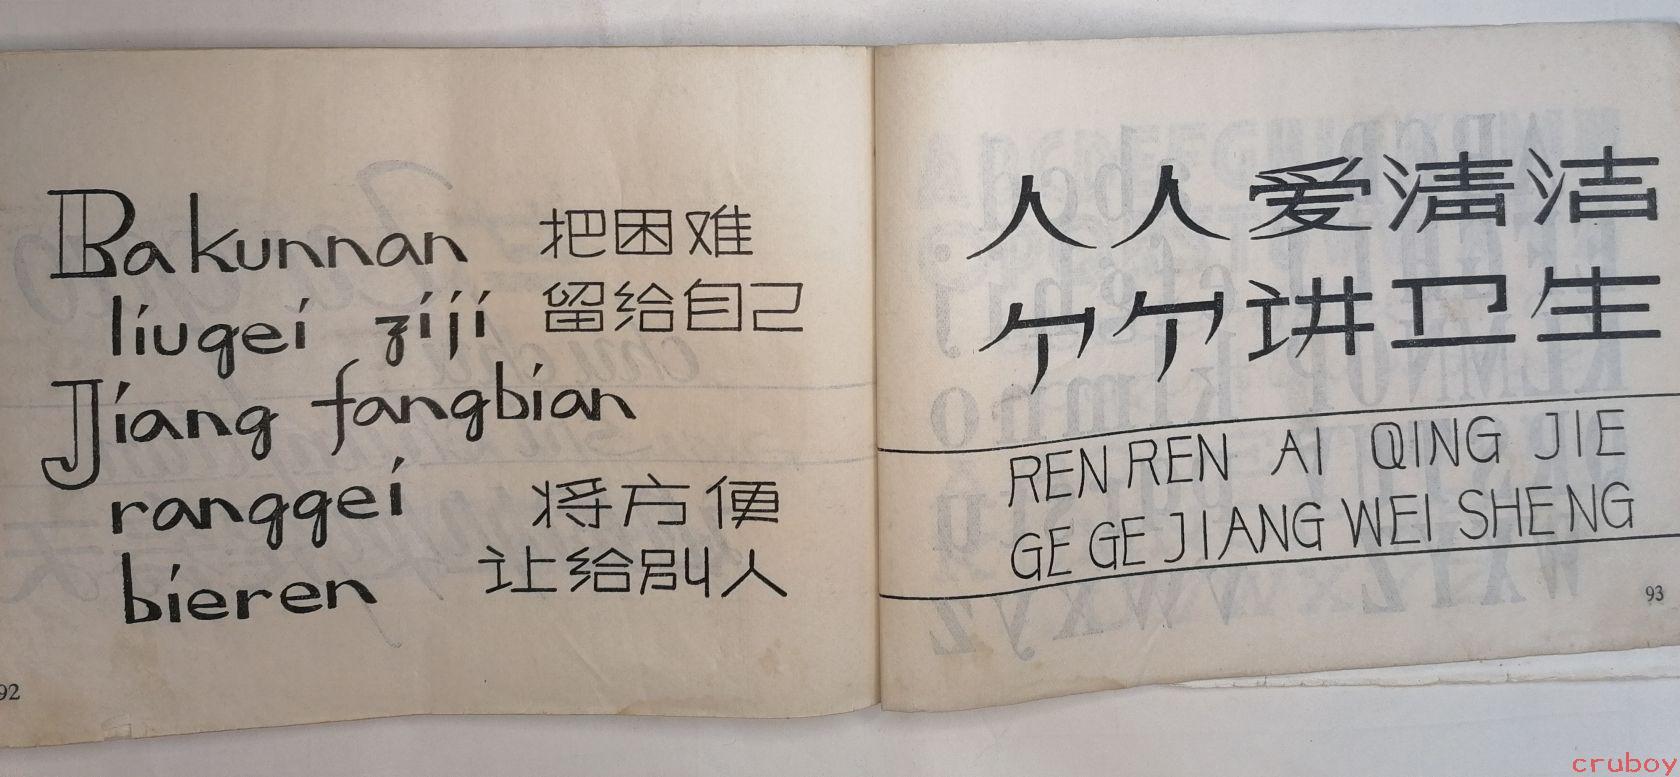 Ba kunnan
liugei ziji
Jiang fangbian
ranggei
bieren
把困难
留给自己
将方便
让给别人
92
人人爱清洁
个个讲卫生
REN REN AI QING JIE
GE GE JIANG WEI SHENG
93
cruboy